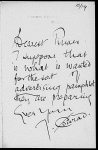 Dearest
I suppose that
is what is wanted
for the set of
advertising pamphlet
they are preparing
Ever yrs
J. Conrad